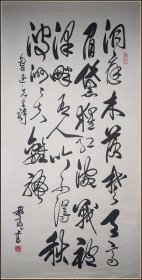 洞庭木落楚天高
眉黛猩红涴戰袍
澤畔有人吟不得秋
波渺渺失離騷
魯迅先生詩